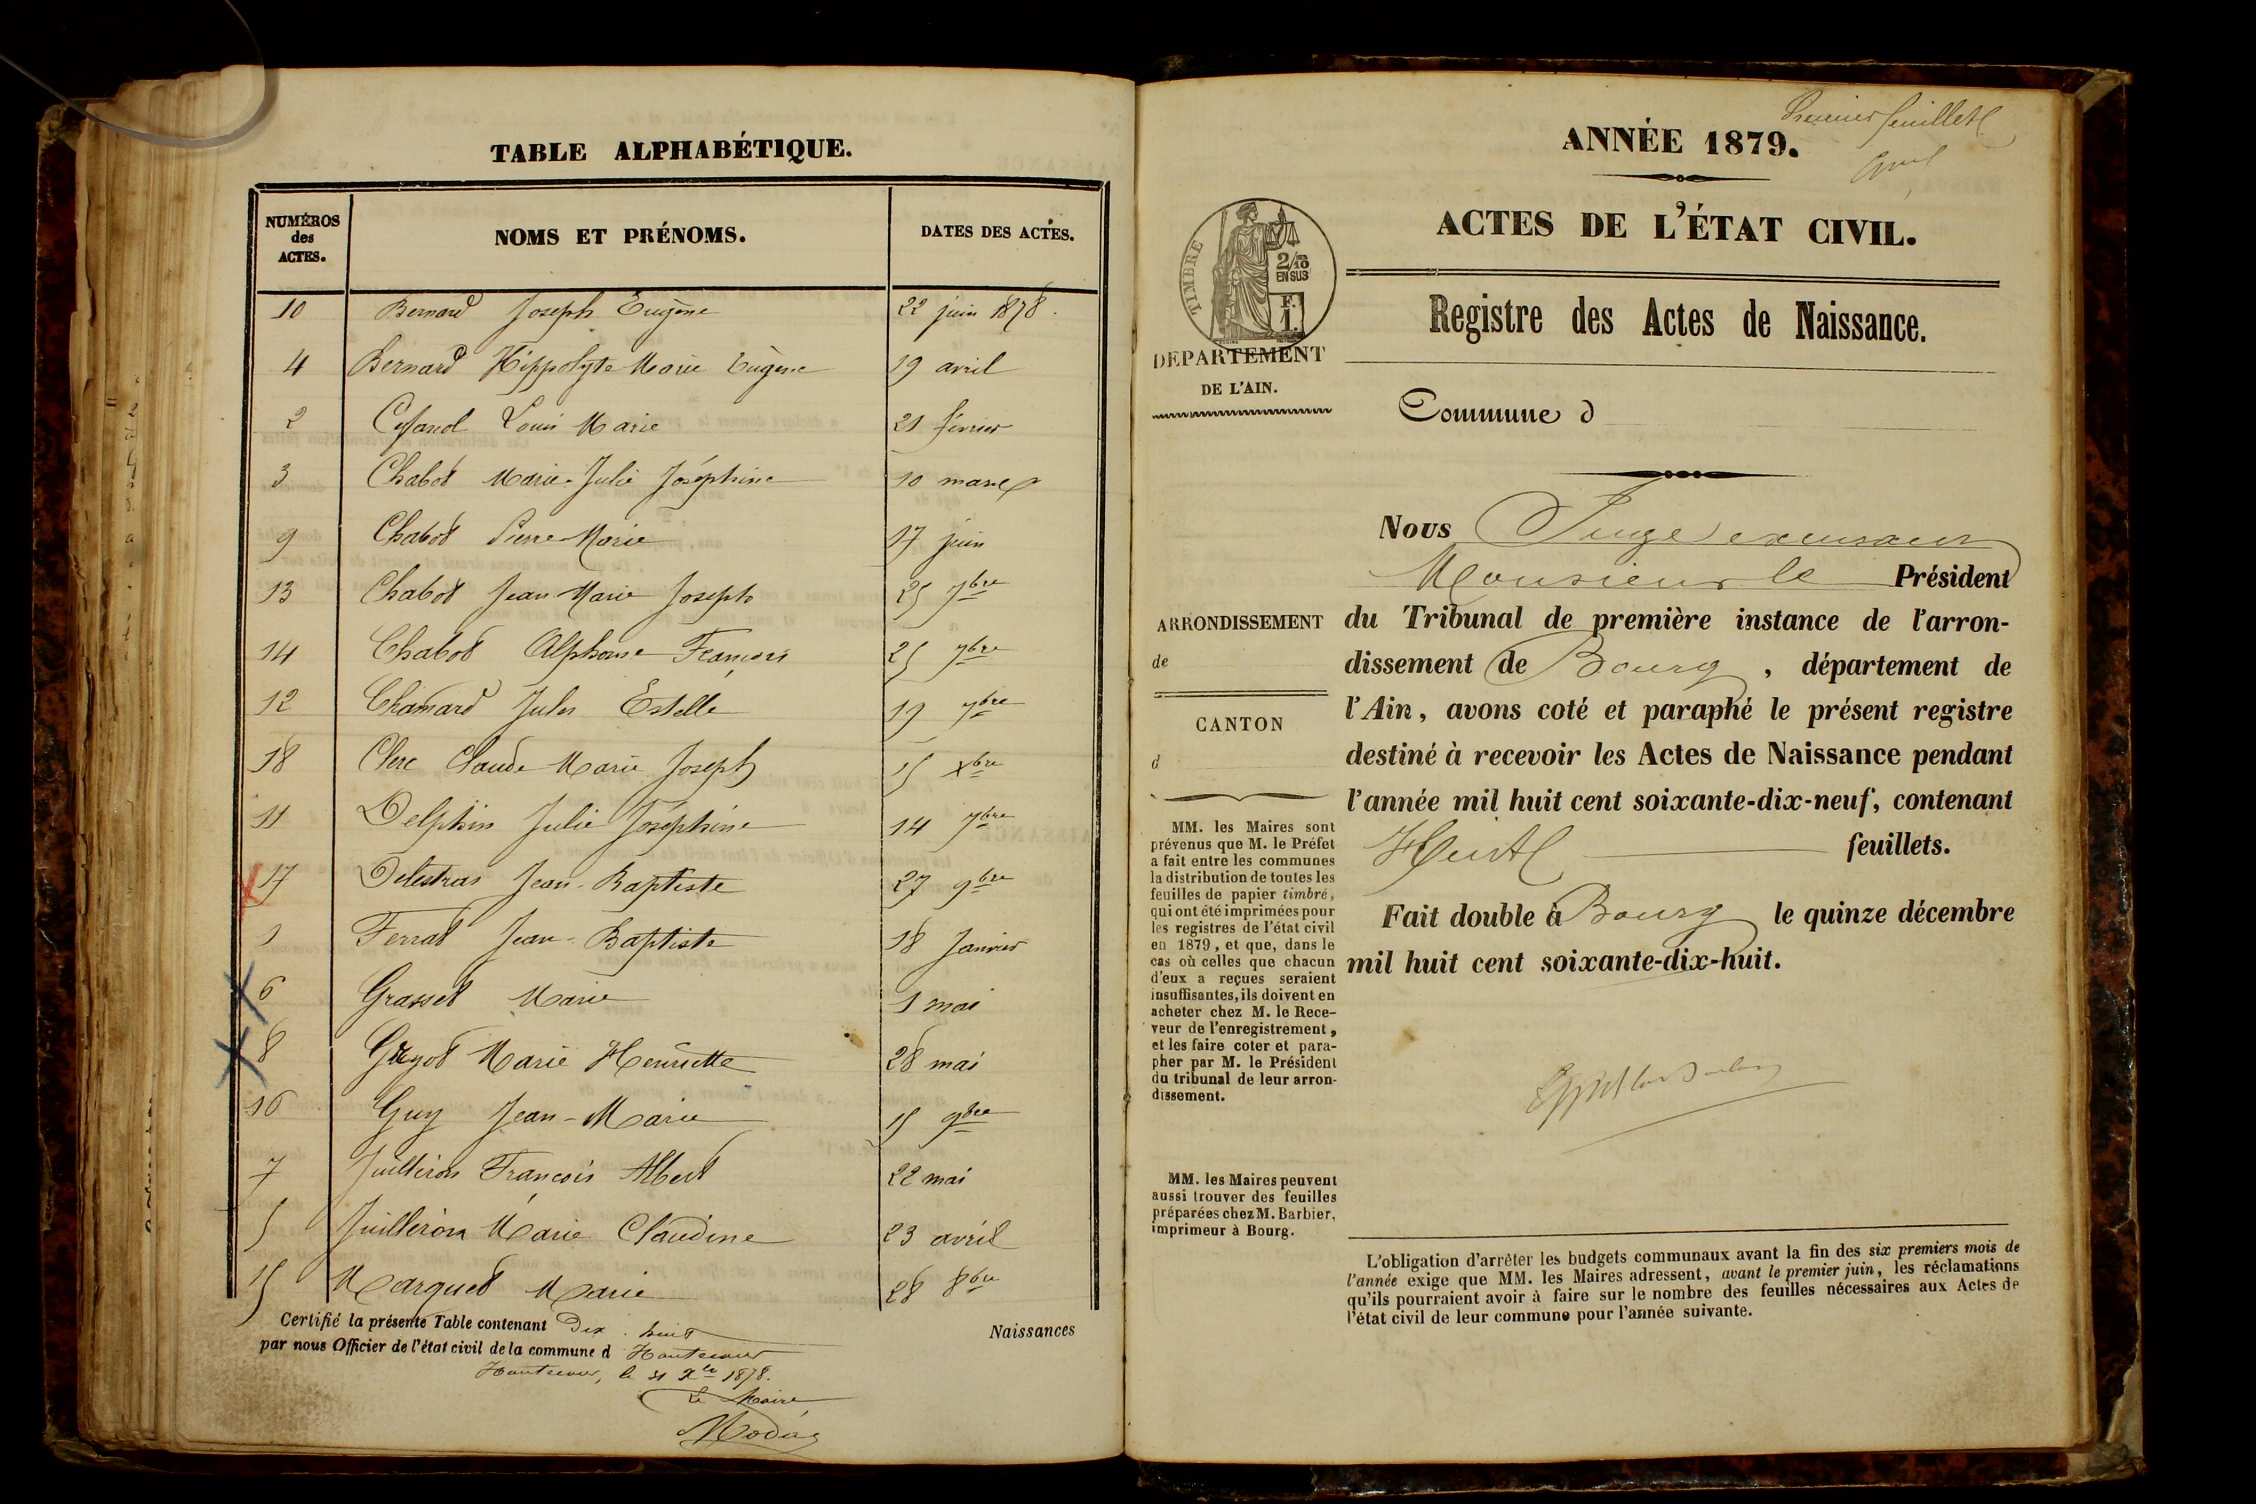 TABLE ALPHABÉTIQUE.
NUMÉROS des ACTES. NOMS ET PRÉNOMS. DATES DES ACTES.
10 Bernard Joseph Eugène 22 juin 1878.
4 Bernard Hippolyte Marie Eugène 19 avril
2 Louis Marie 21 février
3 Chabot Marie-Julie Joséphine 10 mars
9 Chabot Pierre Marie 17 juin
13 Chabot Jean Marie Joseph 25 7bre
14 Chabot Alphonse François 25 7bre
12 Chamard Jules Estelle 19 7bre
18 Clerc Claude Marie Joseph 15 xbre
11 Delphin Julie Joséphine 14 7bre
17 Delestras Jean-Baptiste 27 9bre
1 Ferrat Jean-Baptiste 18 Janvier
6 Grasset Marie 1 mai
8 Guyot Marie Henriette 28 mai
16 Guy Jean-Marie 15 9bre
7 Juilleron François Albert 22 mai
5 Juilleron Marie Claudine 23 avril
15 Marquet Marie 28 8bre
Certifié la présente Table contenant Dix-huit Naissances
par nous Officier de l'état civil de la commune d Hautecour
Hautecour, le 31 Xbre 1878.
Le Maire
Premier feuillet
ANNÉE 1879.
ACTES DE L'ÉTAT CIVIL.
TIMBRE
2/10
EN SUS
F.
1.
Registre des Actes de Naissance.
DÉPARTEMENT
DE L'AIN.
Commune d
Nous Juge
Monsieur le Président
ARRONDISSEMENT
de
CANTON
d
du Tribunal de première instance de l'arron-
dissement de Bourg, département de
l'Ain, avons coté et paraphé le présent registre
destiné à recevoir les Actes de Naissance pendant
l'année mil huit cent soixante-dix-neuf, contenant
Huit feuillets.
Fait double à Bourg le quinze décembre
mil huit cent soixante-dix-huit.
MM. les Maires sont
prévenus que M. le Préfet
a fait entre les communes
la distribution de toutes les
feuilles de papier timbré,
qui ont été imprimées pour
les registres de l'état civil
en 1879, et que, dans le
cas où celles que chacun
d'eux a reçues seraient
insuffisantes, ils doivent en
acheter chez M. le Rece-
veur de l'enregistrement,
et les faire coter et para-
pher par M. le Président
du tribunal de leur arron-
dissement.
MM. les Maires peuvent
aussi trouver des feuilles
préparées chez M. Barbier,
imprimeur à Bourg.
L'obligation d'arrêter les budgets communaux avant la fin des six premiers mois de
l'année exige que MM. les Maires adressent, avant le premier juin, les réclamations
qu'ils pourraient avoir à faire sur le nombre des feuilles nécessaires aux Actes de
l'état civil de leur commune pour l'année suivante.